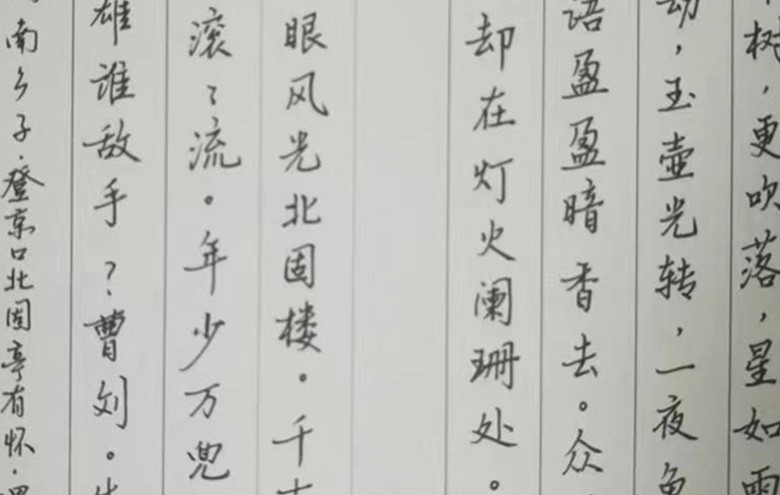 树，更吹落，星如雨
动，玉壶光转，一夜鱼
语盈盈暗香去。众
却在灯火阑珊处。
眼风光北固楼。千古
滚〻流。年少万兜
雄谁敌手？曹刘。生
南乡子·登京口北固亭有怀·